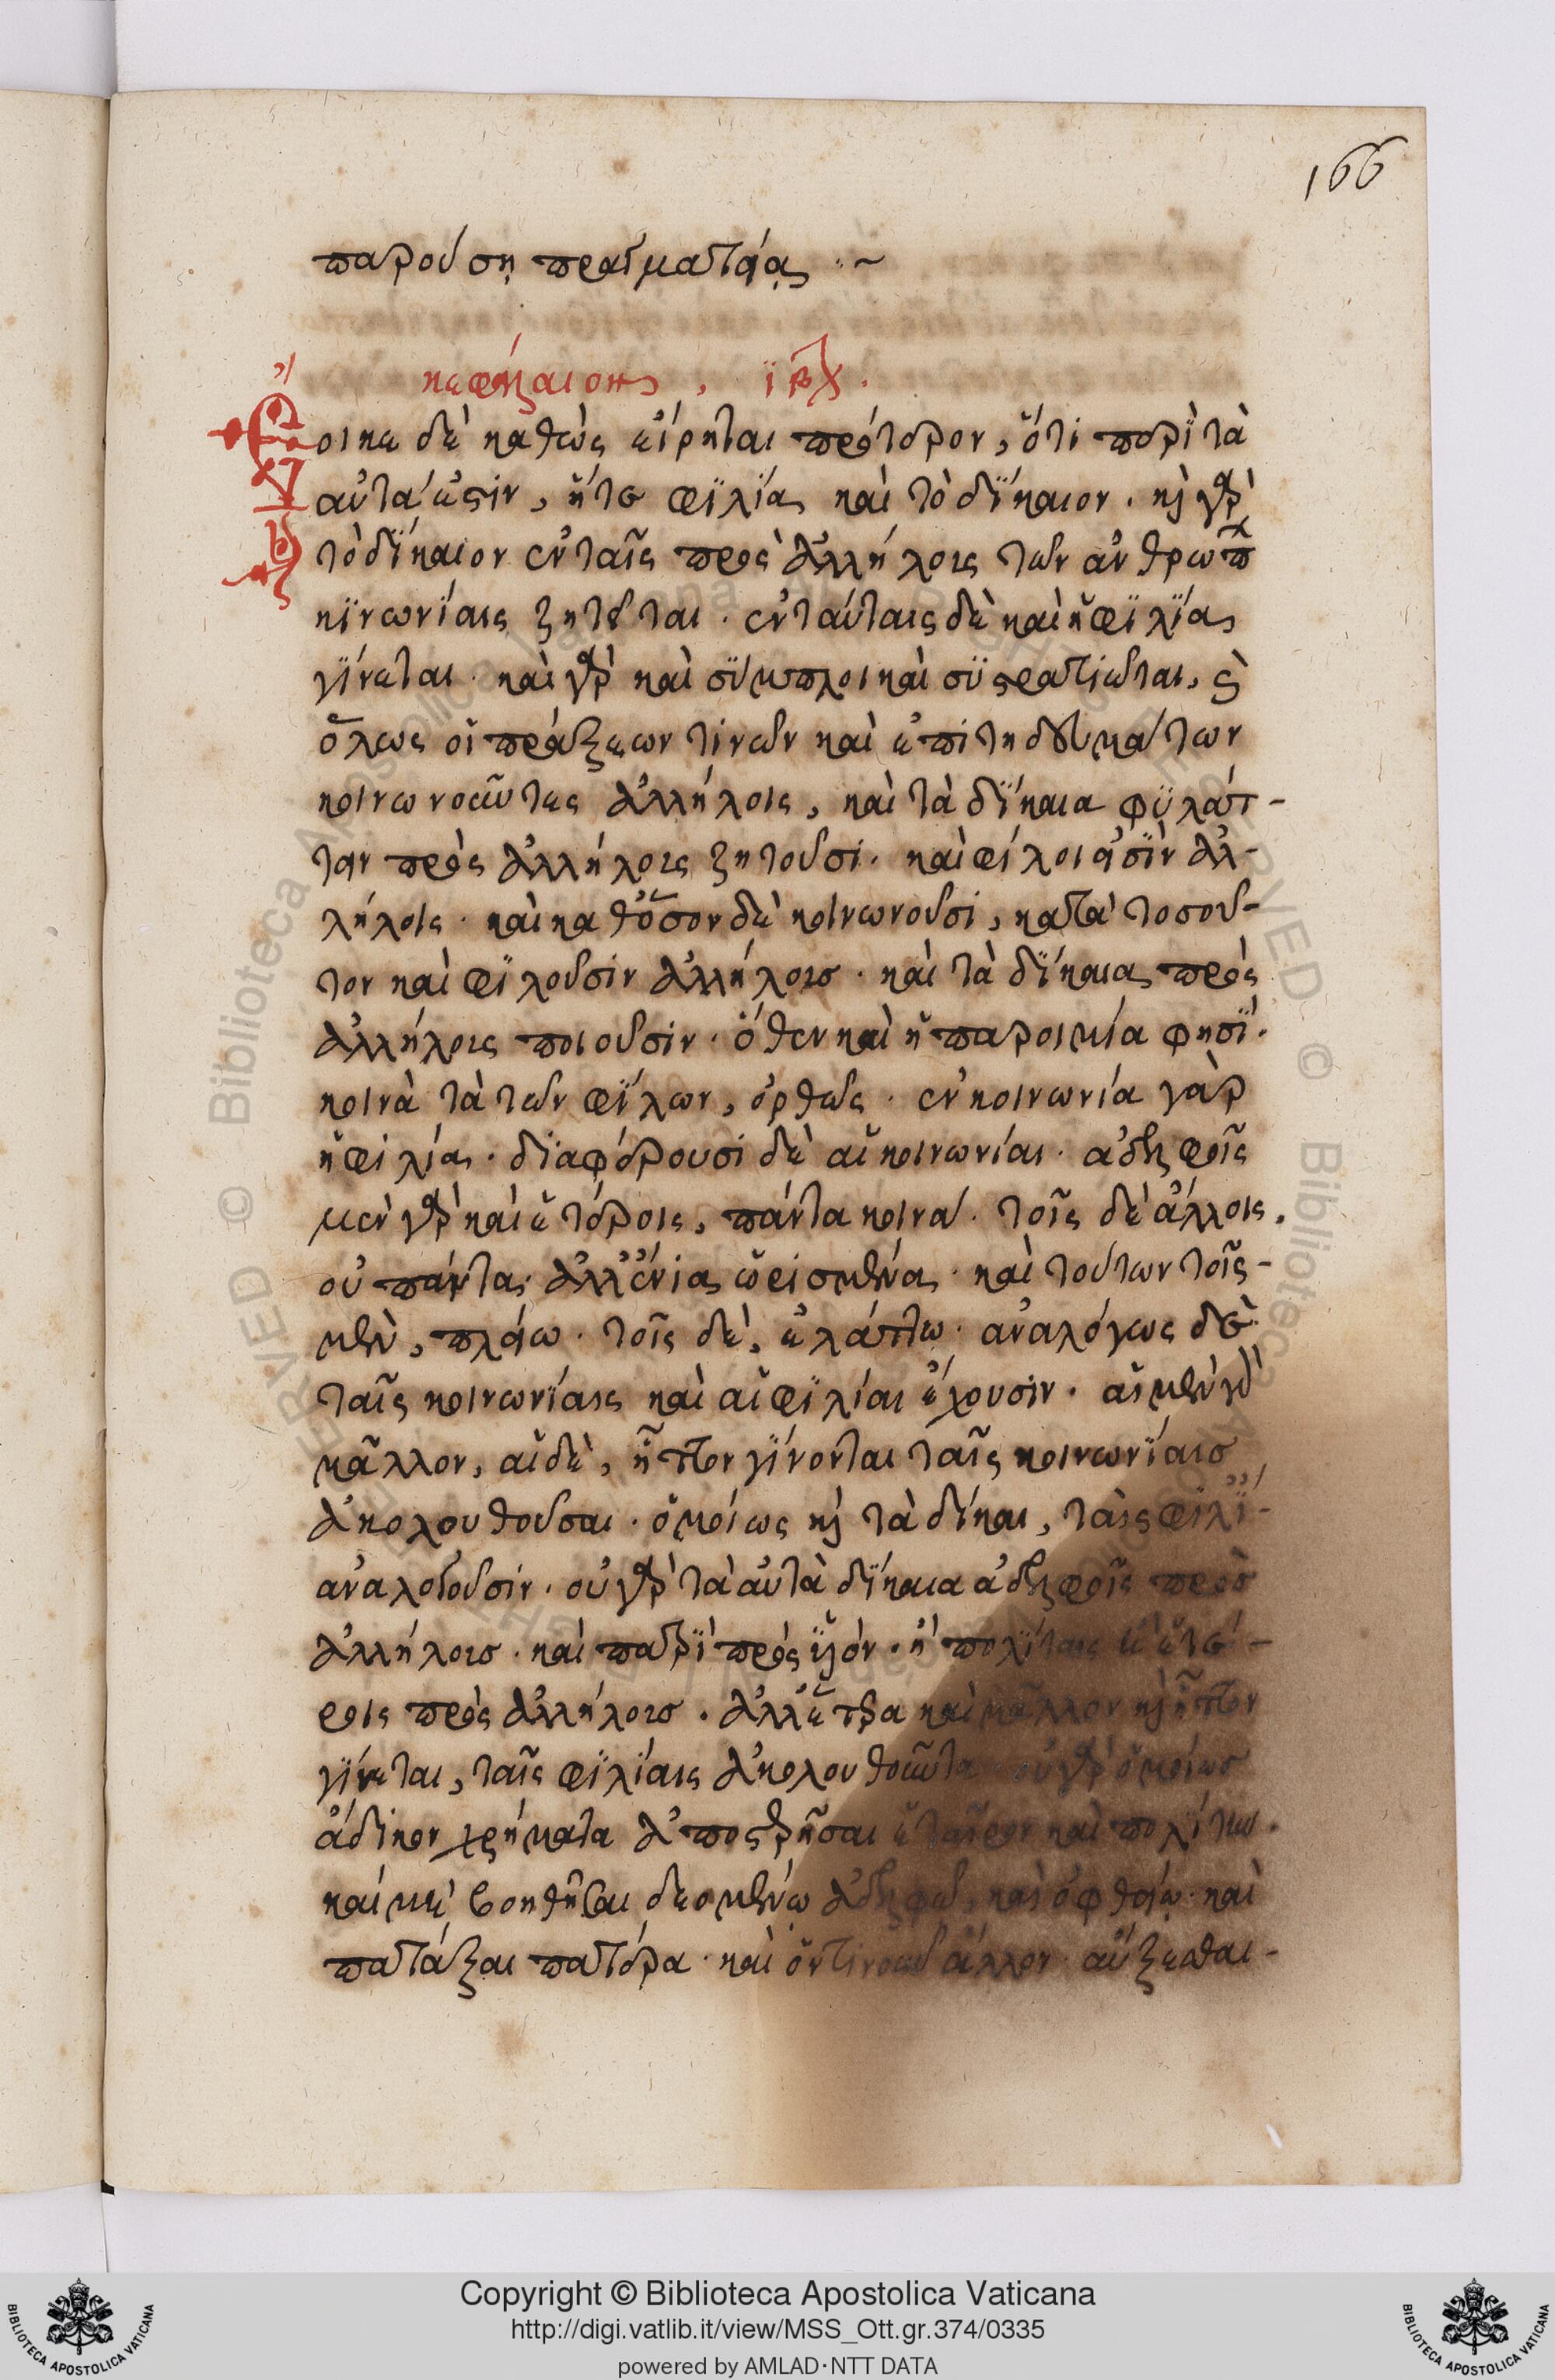 166
παρούσῃ πραγματείᾳ :~
κεφάλαιον ,
Ἔοικε δὲ καθὼς εἴρηται πρότερον, ὅτι περὶ τὰ
αὐτά ἐστιν, ἥτε φιλία καὶ τὸ δίκαιον. κ γὰρ
τὸ δίκαιον ἐν ταῖς πρὸς ἀλλήλους τῶν ἀνθρώπ
κινωνίαις ζητεῖται. ἐν ταύταις δὲ καὶ ἡ φιλία
γίνεται. καὶ γὰρ καὶ σύμπλοι καὶ συστρατιῶται, κ
ὅλως οἱ πράξεων τινῶν καὶ ἐπιτηδευμάτων
κοινωνοῦντες ἀλλήλοις, καὶ τὰ δίκαια φυλάτ-
τειν πρὸς ἀλλήλους ζητοῦσι. καὶ φίλοι εἰσὶν ἀλ-
λήλοις. καὶ καθόσον δὲ κοινωνοῦσι, κατὰ τοσοῦ-
τον καὶ φιλοῦσιν ἀλλήλους. καὶ τὰ δίκαια πρὸς
ἀλλήλους ποιοῦσιν. ὅθεν καὶ ἡ παροιμία φησί.
κοινὰ τὰ τῶν φίλων, ὀρθῶς. ἐν κοινωνία γὰρ
ἡ φιλία. διαφέρουσι δὲ αἱ κοινωνίαι. ἀδελφοῖς
μὲν γὰρ καὶ ἑτέροις, πάντα κοινά. τοῖς δὲ ἄλλοις.
οὐ πάντα. ἀλλ' ἔνια ὡρισμένα. καὶ τούτων τοῖς-
μὲν, πλείω. τοῖς δὲ, ἐλάττω. ἀναλόγως δὲ
ταῖς κοινωνίαις καὶ αἱ φιλίαι ἔχουσιν. αἱ μὲν γὰρ
μᾶλλον, αἱ δὲ, ἧττον γίνονται ταῖς κοινωνίαις
ἀκολουθοῦσαι. ὁμοίως κ τὰ δίκαι, ταὶς φιλί-
ἀναλογοῦσιν. οὐ γὰρ τὰ αὐτὰ δίκαια ἀδελφοῖς πρὸς
ἀλλήλους. καὶ πατρὶ πρὸς ὑιόν. ἢ πολίταις ἢ ἑτέ-
ροις πρὸς ἀλλήλους. ἀλλ' ἕτερα καὶ μᾶλλον κ ἧττον
γίνεται, ταῖς φιλίαις ἀκολουθοῦντα. οὐ γὰρ ὁμοίως
ἄδικον χρήματα ἀποστερῆσαι ἑταῖρον καὶ πολίτην.
καὶ μὴ βοηθῆσαι δεομένω ἀδελφῶ, καὶ ὀφθείω. καὶ
πατάξαι πατέρα. καὶ ὅντινοῦν ἄλλον. αὔξεσθαι-
Copyright © Biblioteca Apostolica Vaticana
http://digi.vatlib.it/view/MSS_Ott.gr.374/0335
powered by AMLAD·NTT DATA